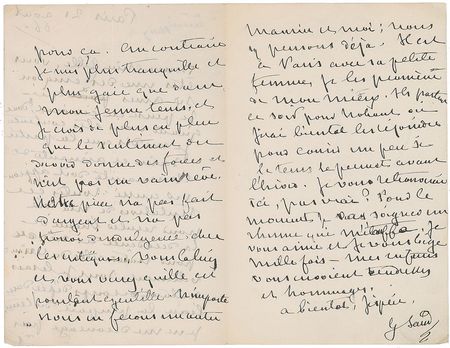 pour ça. Au contraire
je suis plus tranquille et
plus gaie que dans
mon jeune tems, et
je crois de plus en plus
que le sentiment du
devoir donne des forces et
n'est pas un vain rêve.
Notre pièce n'a pas fait
d'argent et n'a pas
trouvé d'indulgence chez
les critiques, vous la lirez
et vous verrez qu'elle est
pourtant gentille. N'importe
nous en ferons une autre
Maurice et moi; nous
y pensons déjà. Il est
à Paris avec sa petite
femme, je les promène
de mon mieux. Ils partent
ce soir pour Nohant où
j'irai bientôt les rejoindre
pour courir un peu si
le tems le permet avant
l'hiver. Je vous retrouverai
ici, pas vrai? Pour le
moment, je vais soigner un
rhume qui m'étouffe, je
vous aime et je vous bige
mille fois – mes enfans
vous envoient tendresses
et hommages.
à bientôt, j'espère.
G Sand